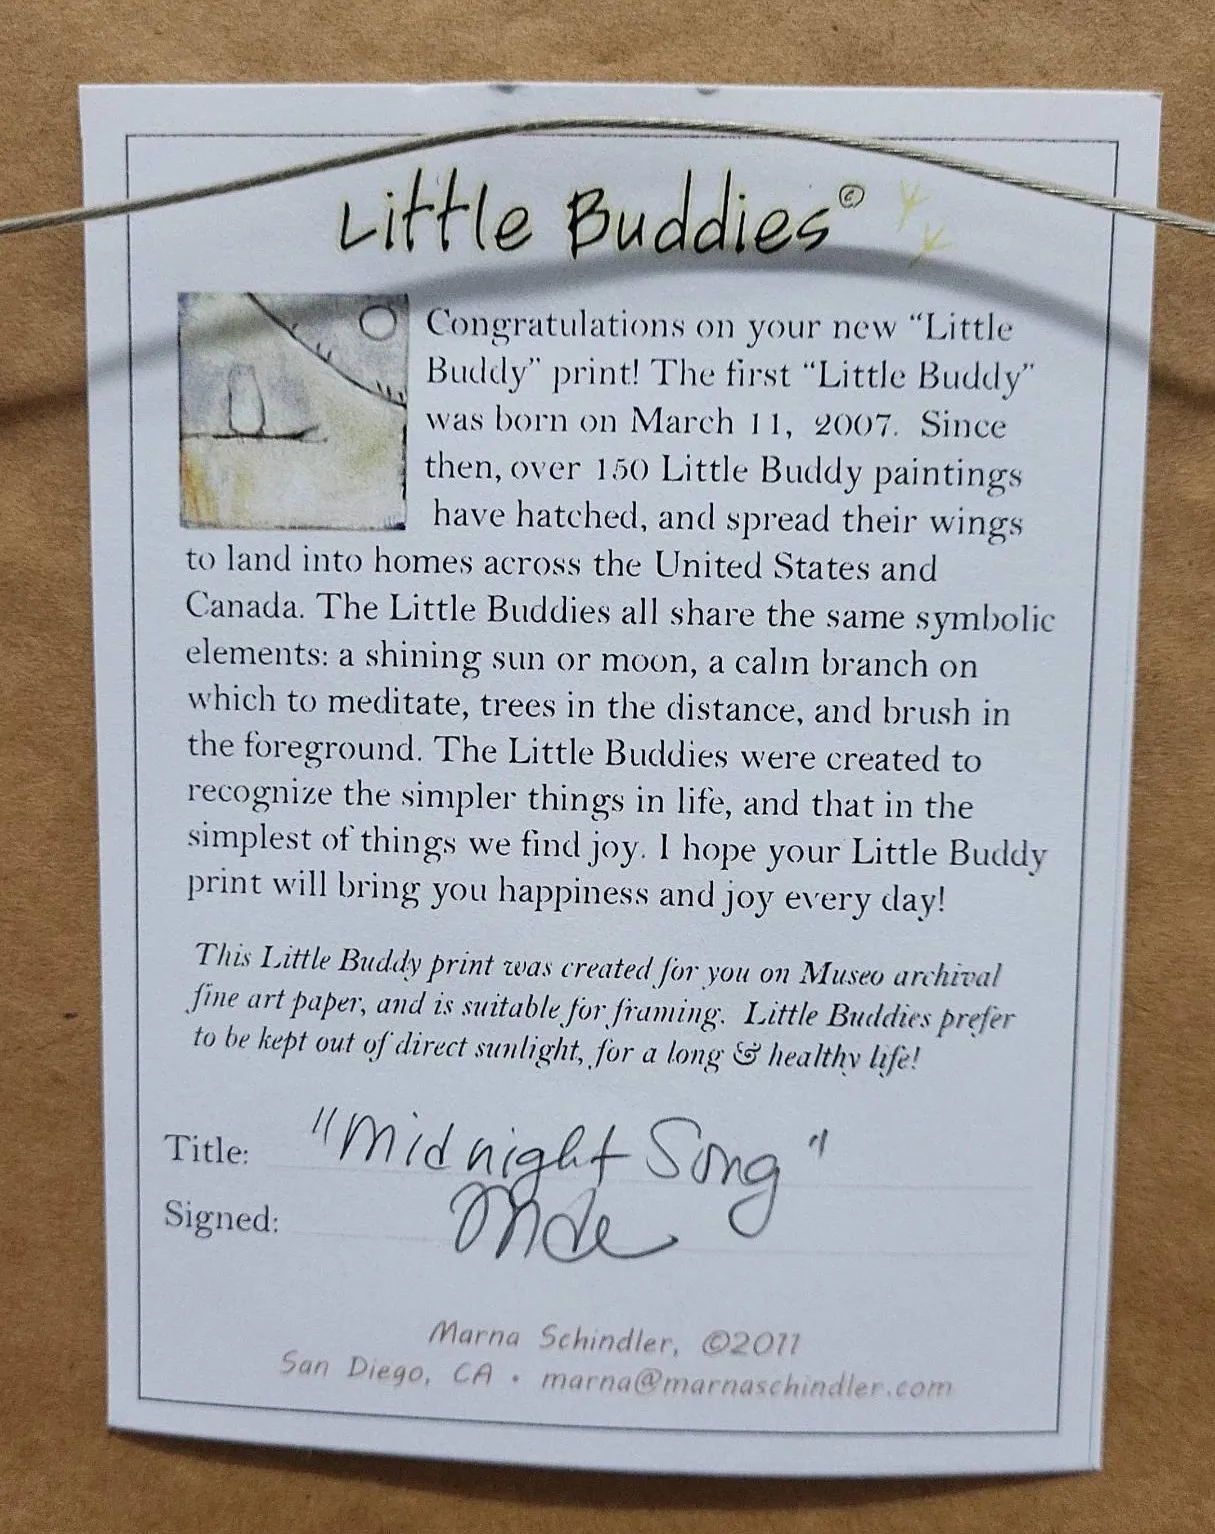 Little Buddies©
Congratulations on your new “Little
Buddy” print! The first “Little Buddy”
was born on March 11, 2007. Since
then, over 150 Little Buddy paintings
have hatched, and spread their wings
to land into homes across the United States and
Canada. The Little Buddies all share the same symbolic
elements: a shining sun or moon, a calm branch on
which to meditate, trees in the distance, and brush in
the foreground. The Little Buddies were created to
recognize the simpler things in life, and that in the
simplest of things we find joy. I hope your Little Buddy
print will bring you happiness and joy every day!
This Little Buddy print was created for you on Museo archival
fine art paper, and is suitable for framing. Little Buddies prefer
to be kept out of direct sunlight, for a long & healthy life!
Title: "Midnight Song"
Signed:
Marna Schindler, ©2011
San Diego, CA • marna@marnaschindler.com